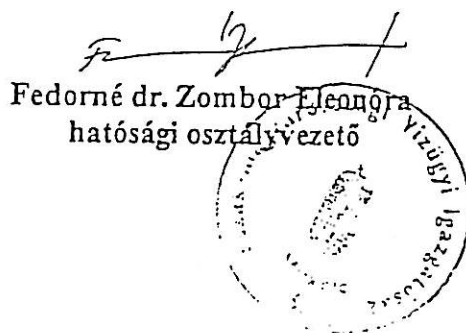 Fedorné dr. Zombor Eleonóra
hatósági osztályvezető
Vízügyi Igazgatóság